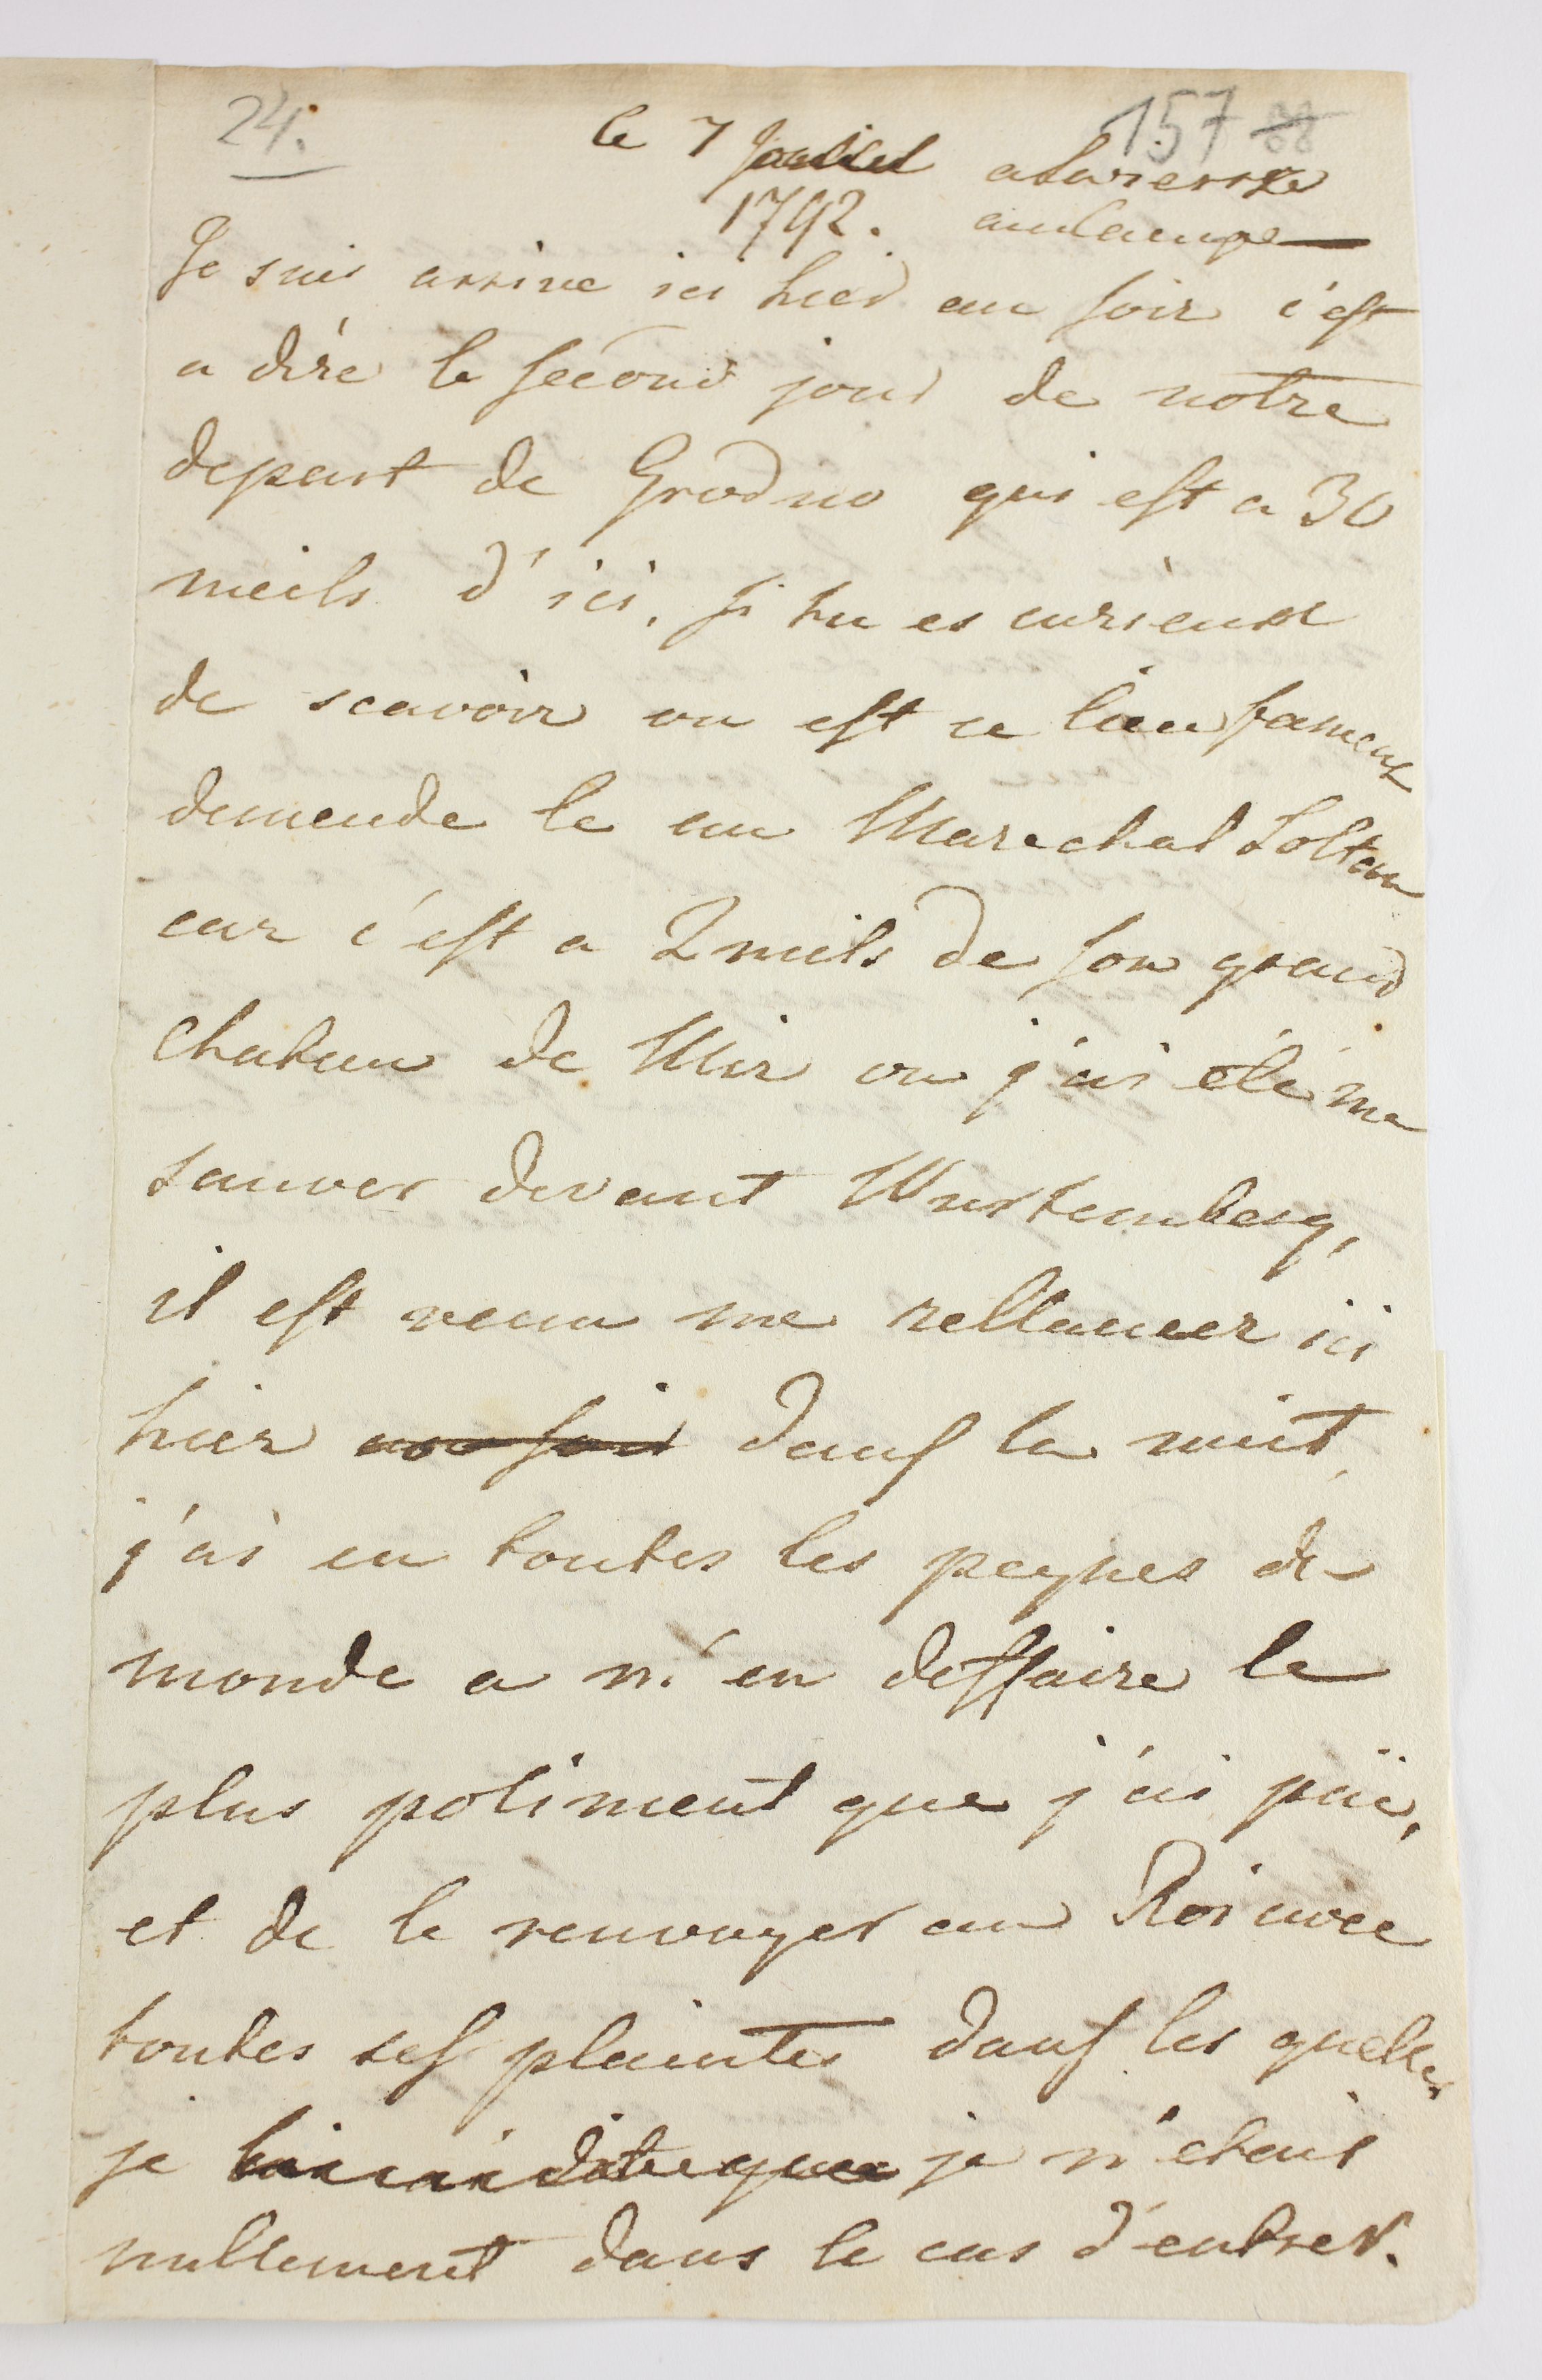 24.
157 88
le 7 Jouliel
1792. au camp
Je suis arrive ici hier au soir c'est
a dire le second jour de notre
depart de Grodno qui est a 30
meils d'ici, si tu es curieux
de scavoir ou est ce lieu fameux
demende le au Marechal Soltan
car c'est a 2 mils de son grand
chateau de Mir ou j'ai été me
sauver devant Wurtemberg,
il est venu me rellancer ici
hier au soir dans la nuit
j'ai eu toutes les peynes du
monde a m'en deffaire le
plus poliment que j'ai puë,
et de le renvoyer au Roi avec
toutes ses plaintes dans les quelles
je lui ai dit que je n'etais
nullement dans le cas d'entrer.